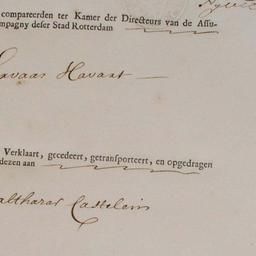 compareerden ter Kamer der Directeurs van de Assu-
mpagny deser Stad Rotterdam
Havart
Verklaart, gecedeert, getransporteert, en opgedragen
dezen aan
althazar Castelein